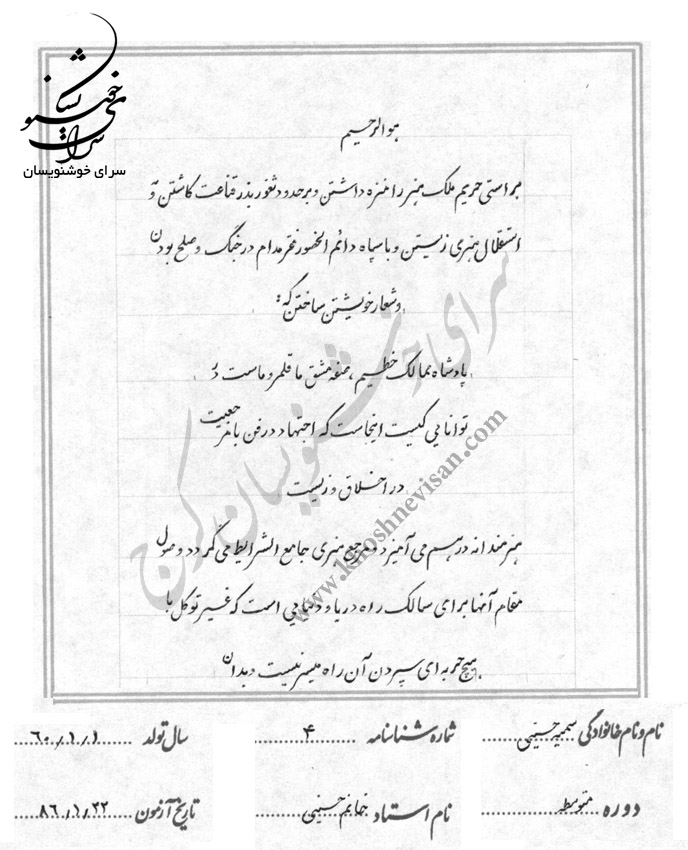 خوشنویسان
سرای
سرای خوشنویسان
هوالرحیم
براستی حریم ملک هنر را منزه داشتن و بر حدود ثغور بذر قناعت کاشتن و
استقلال هنری زیستن و با سپاه دائم الحضور فقر مدام در جنگ و صلح بودن
و شعار خویشتن ساختن که:
پادشاه ممالک خطیم، صفه مشق ما قلمرو ماست در
توانایی کیست اینجاست که اجتهاد در فن با مرجعیت
در اخلاق و زیست
هنرمندانه در هم می آمیزد و مرجع هنری جامع الشرایط می گردد وصول
مقام آنها برای سالک راه دریا و دلهایی است که غیر توکل با
هیچ حربه ای سپردن آن راه میسر نیست و بدان
سرای خوشنویسان کرج
www.khoshnevisan.com
نام و نام خانوادگی سمیه حسینی
شماره شناسنامه ۴
سال تولد ۶۰/۱/۱
دوره متوسطه
نام استاد خانم حسینی
تاریخ آزمون ۸۶/۱/۲۲